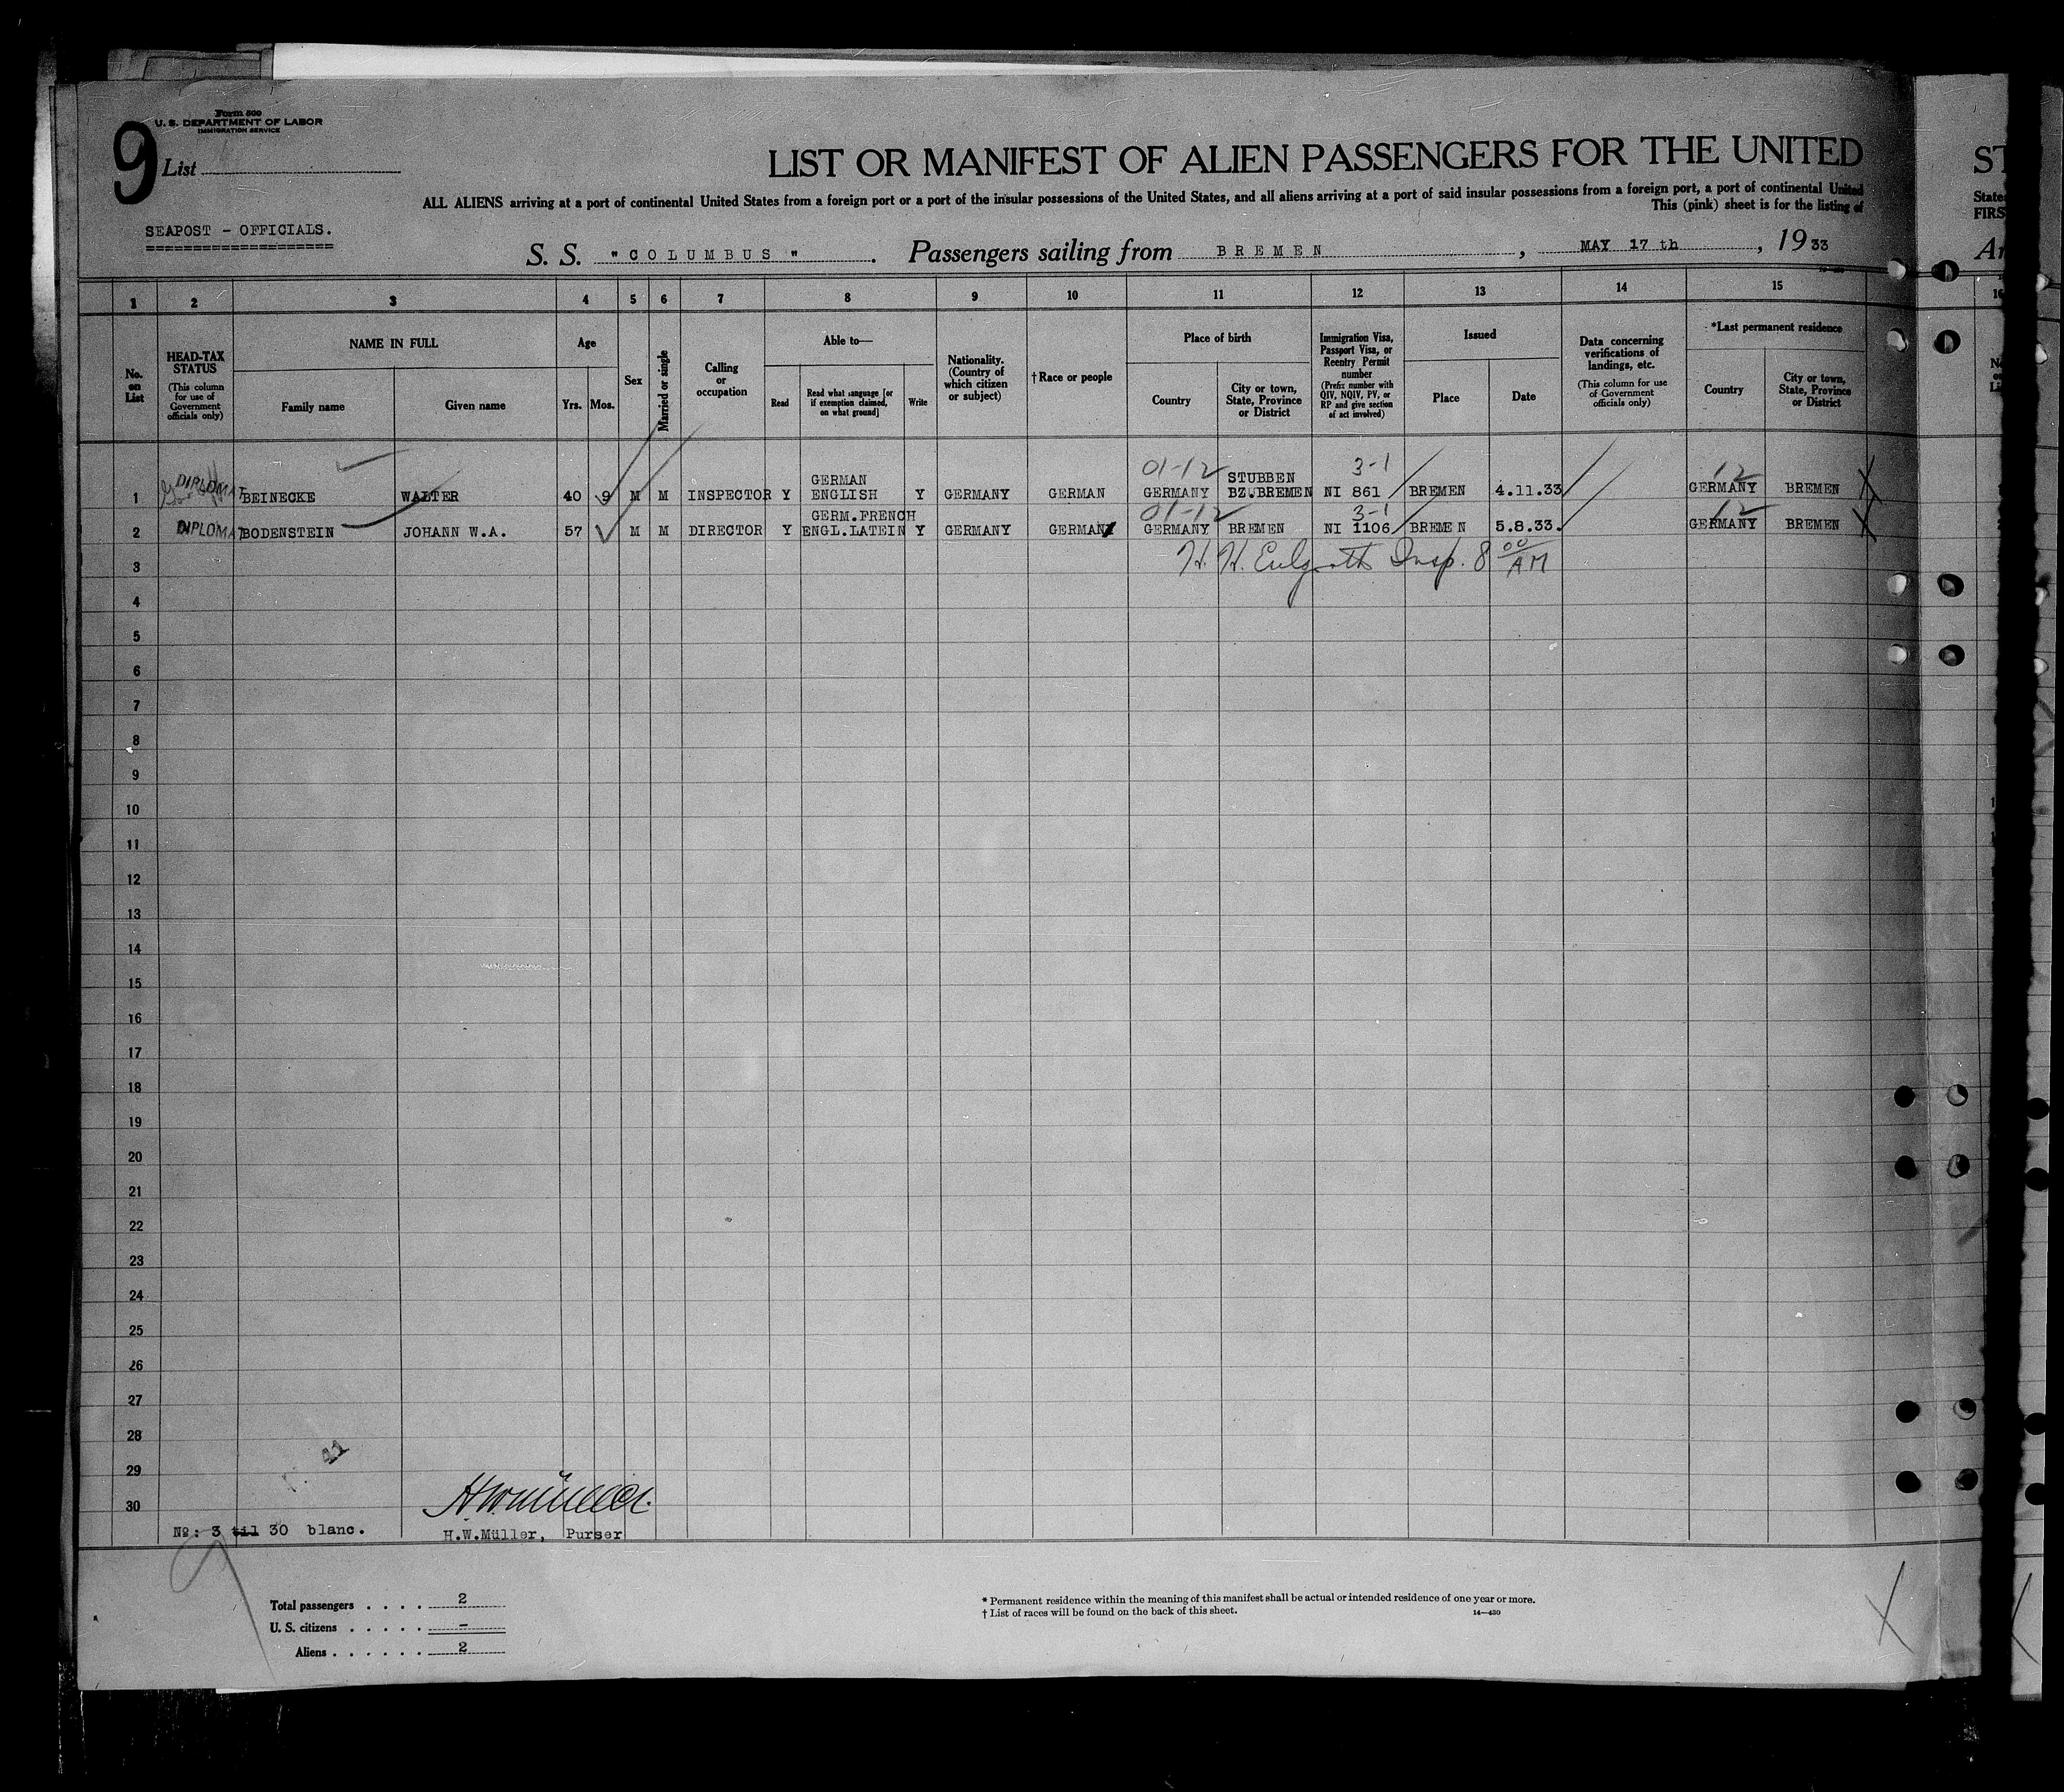 Form 500
U. S. DEPARTMENT OF LABOR
IMMIGRATION SERVICE
9 List
LIST OR MANIFEST OF ALIEN PASSENGERS FOR THE UNITED
ST
ALL ALIENS arriving at a port of continental United States from a foreign port or a port of the insular possessions of the United States, and all aliens arriving at a port of said insular possessions from a foreign port, a port of continental United
State
This (pink) sheet is for the listing of
FIRS
SEAPOST - OFFICIALS.
S. S. "COLUMBUS". Passengers sailing from BREMEN, MAY 17 th, 1933
Ar
1 2 3 4 5 6 7 8 9 10 11 12 13 14 15
No. on List
HEAD-TAX STATUS (This column for use of Government officials only)
NAME IN FULL
Family name Given name
Age
Yrs. Mos.
Sex
Married or single
Calling or occupation
Able to—
Read Read what language [or if exemption claimed, on what ground] Write
Nationality. (Country of which citizen or subject)
† Race or people
Place of birth
Country City or town, State, Province or District
Immigration Visa, Passport Visa, or Reentry Permit number (Prefix number with QIV, NQIV, PV, or RP and give section of act involved)
Issued
Place Date
Data concerning verifications of landings, etc. (This column for use of Government officials only)
*Last permanent residence
Country City or town, State, Province or District
01-12 3-1 12
GERMAN STUBBEN
1 DIPLOMAT BEINECKE WALTER 40 9 M M INSPECTOR Y ENGLISH Y GERMANY GERMAN GERMANY BZ.BREMEN NI 861 BREMEN 4.11.33 GERMANY BREMEN
01-12 3-1 12
GERM.FRENCH
2 DIPLOMAT BODENSTEIN JOHANN W.A. 57 M M DIRECTOR Y ENGL.LATEIN Y GERMANY GERMAN GERMANY BREMEN NI 1106 BREMEN 5.8.33. GERMANY BREMEN
3 H. H. Insp. 8 00 AM
4
5
6
7
8
9
10
11
12
13
14
15
16
17
18
19
20
21
22
23
24
25
26
27
28
29
30
No: 3 til 30 blanc.
H.W.Müller, Purser
9
Total passengers . . . . 2
U. S. citizens . . . . . -
Aliens . . . . . . 2
* Permanent residence within the meaning of this manifest shall be actual or intended residence of one year or more.
† List of races will be found on the back of this sheet.
14—430